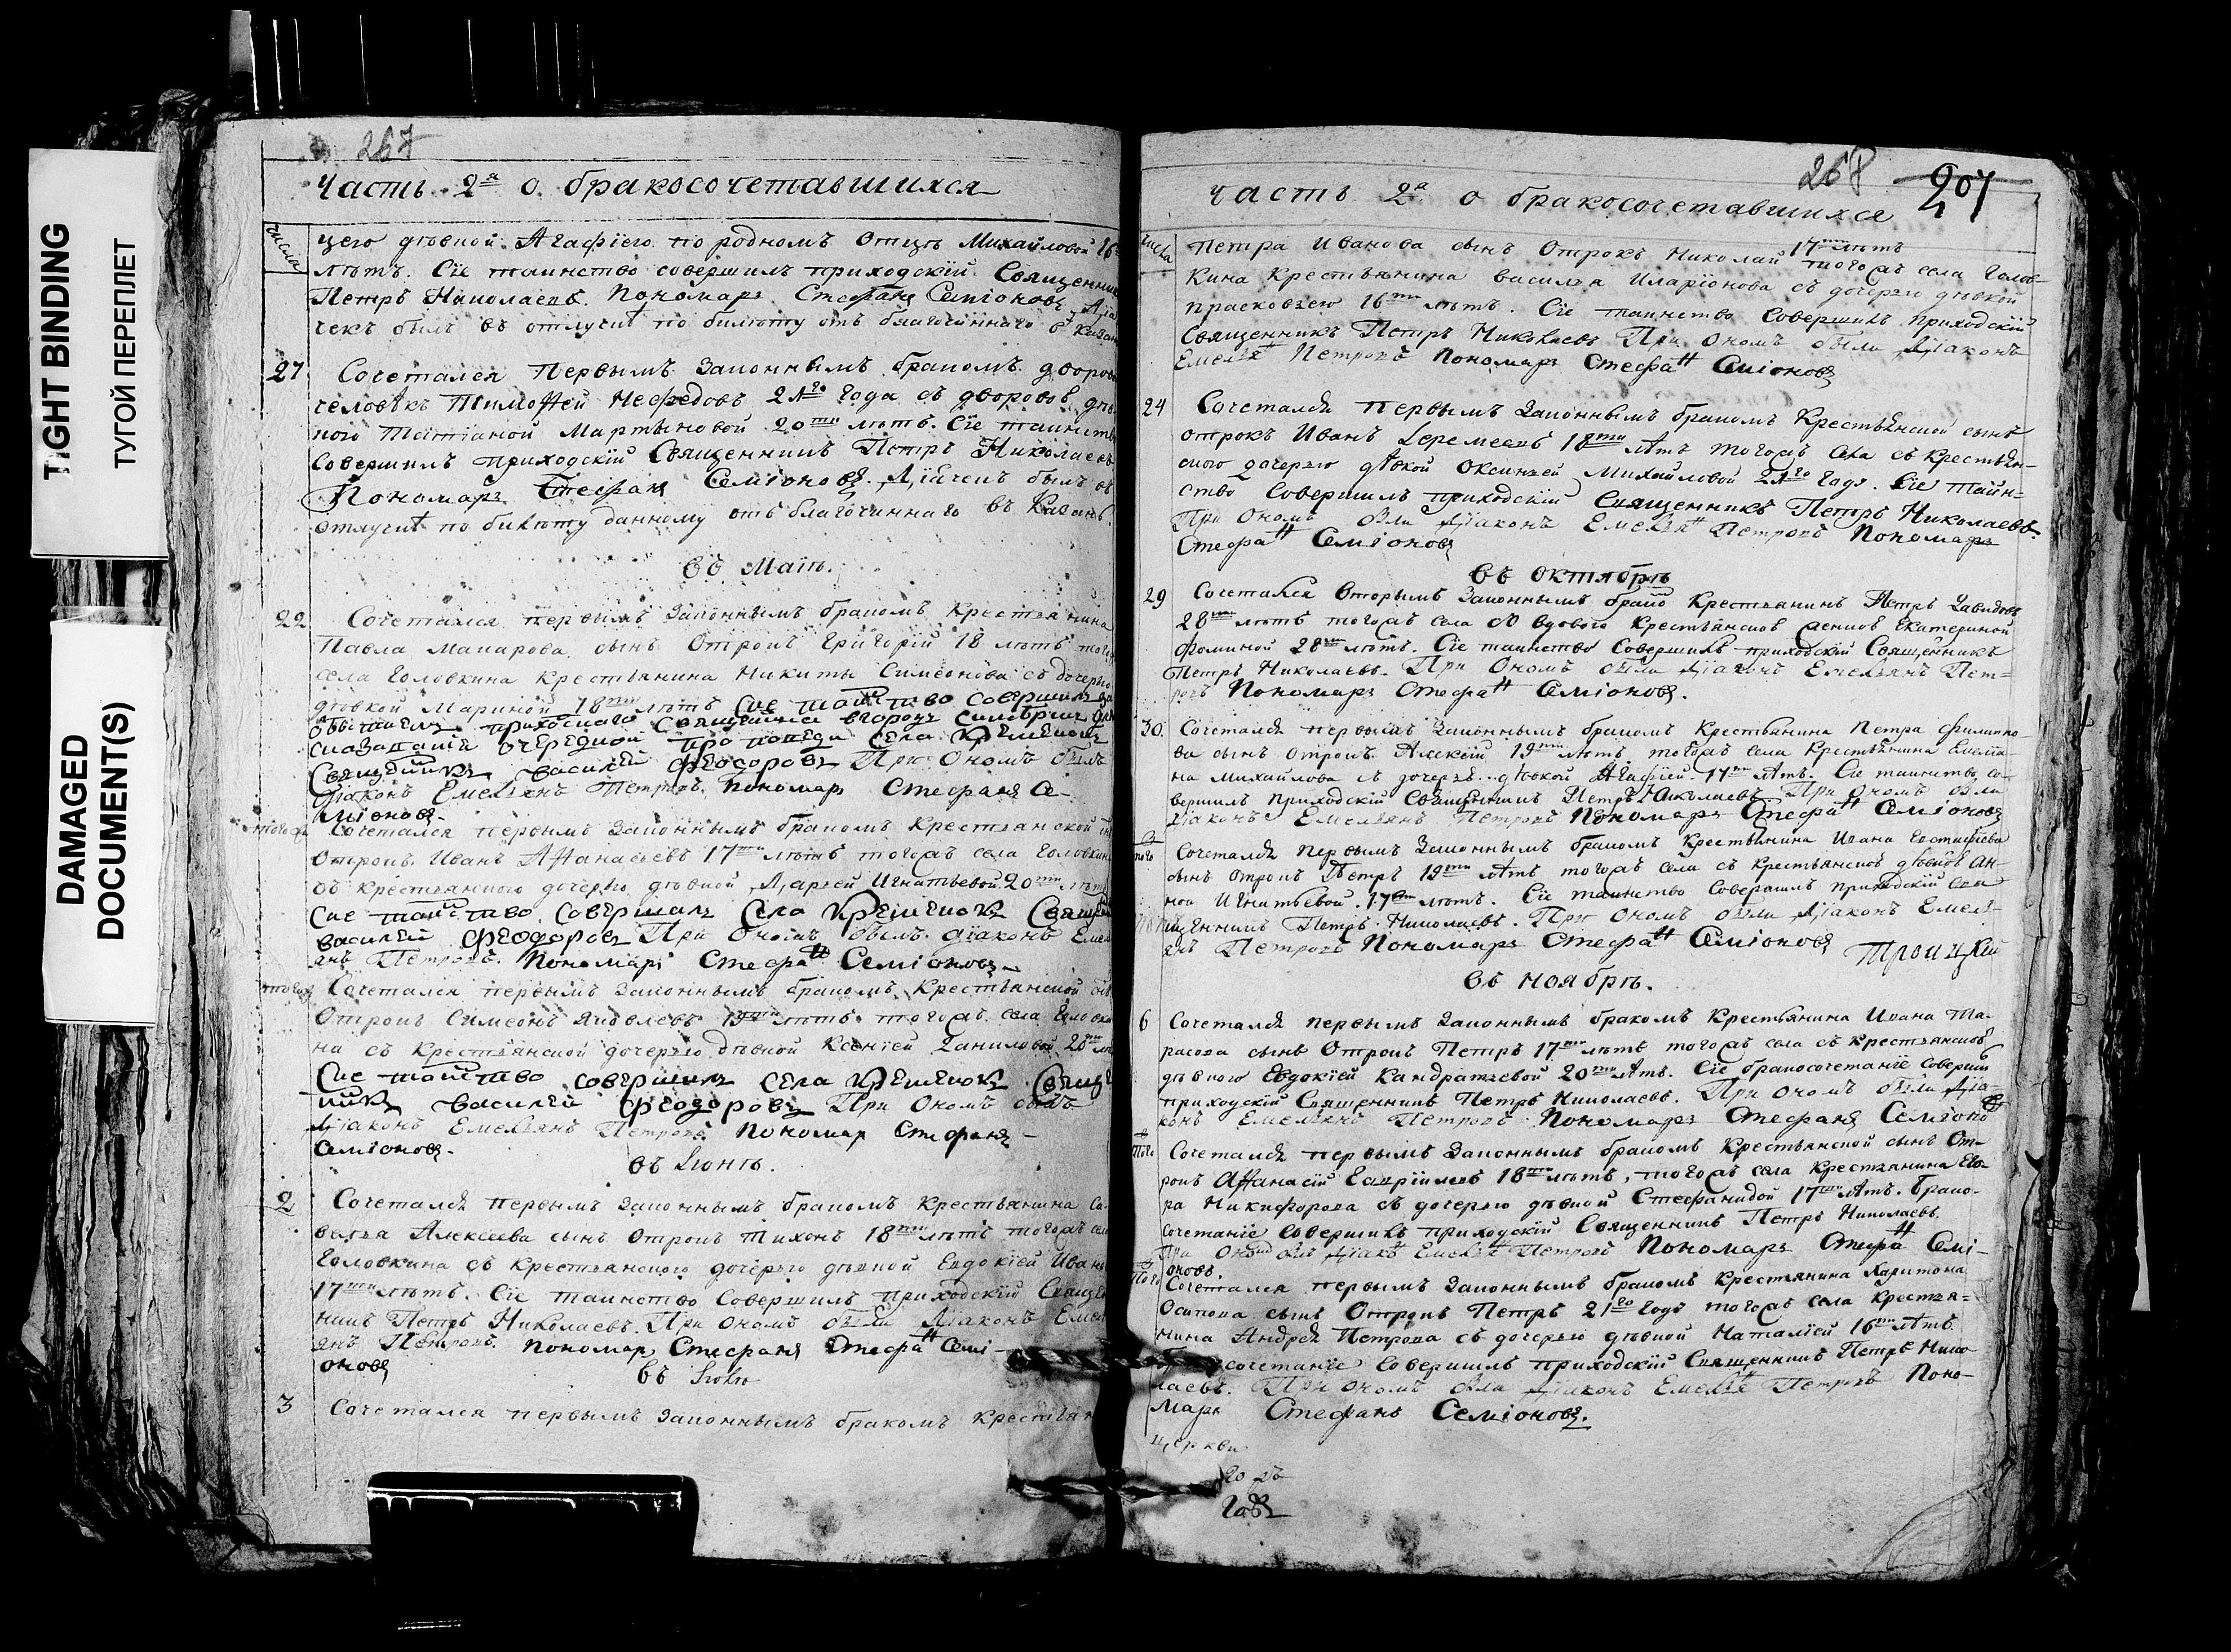 TIGHT BINDING
ТУГОЙ ПЕРЕПЛЕТ
DAMAGED
DOCUMENT(S)
267
Часть 2я о бракосочетавшихся
числа
цею девкой Агафіею по родномъ отцѣ Михайловой 16
лѣтъ. Сіе таинство совершилъ приходскій Священник
Петръ Николаевъ. Пономарь Стефанъ Семіоновъ
чекъ былъ въ отлучкѣ по билету отъ благочиннаго в Казан
27
Сочетался первымъ законнымъ бракомъ дворов
человѣкъ Тимофей Нефедовъ 21го года съ дворовой
кою Татіаной Мартыновой 20ти лѣтъ. Сіе таинств
Совершилъ приходскій Священникъ Петръ Николаевъ
Пономарь Стефанъ Семіоновъ. Дьячекъ былъ въ
отлучкѣ по билету данному отъ благочиннаго въ Казань.
Въ Маіѣ.
22
Сочетался первымъ законнымъ бракомъ Крестьянина
Павла Макарова сынъ Отрокъ Григорій 18 лѣтъ
села Головкина Крестьянина Никиты Симеонова съ дочерью
девкой Мариной 18ти лѣтъ Сие таинство Совершилъ за
приходскаго Священника
очередной проповеди села Кременокъ
Священникъ Василий Феодоровъ При Ономъ были
Діаконъ Емельянъ Петровъ. Пономарь Стефанъ Се-
міоновъ.
Тогожъ
Сочетался первымъ Законнымъ бракомъ Крестьянской
Отрокъ Иванъ Афанасьевъ 17ти лѣтъ тогожъ села Головкина
съ крестьянскою дочерью девкой Дарьей Игнатьевой 20ти лѣтъ
Сие таинство Совершилъ Села Кременокъ Священ
Василий Феодоровъ При Ономъ были діаконъ Емел
янъ Петровъ. Пономарь Стефанъ Семіоновъ
тогожъ
Сочетался первымъ Законнымъ бракомъ Крестьянской
Отрокъ Симеонъ Яковлевъ 19ти лѣтъ тогожъ села Головки
на съ Крестьянской дочерью девкой Ксеніей Даниловой 20ти
Сие таинство совершилъ села Кременокъ Священ
никъ Василий Феодоровъ При Ономъ были
Діаконъ Емельянъ Петровъ. Пономарь Стефанъ
Семіоновъ.
Въ Іюнѣ.
2
Сочетался первымъ Законнымъ бракомъ Крестьянина Са
велья Алексеева сынъ Отрокъ Тихонъ 18ти лѣтъ тогожъ села
Головкина съ Крестьянскою дочерью девкой Евдокіей Ивано
17ти лѣтъ. Сіе таинство Совершилъ приходскій Священ
никъ Петръ Николаевъ. При Ономъ были Діаконъ Емел
янъ Петровъ. Пономарь Стефанъ Стефанъ Семі-
оновъ
Въ Іюлѣ
3
Сочетался первымъ законнымъ бракомъ Крестьян
268
207
Часть 2я о бракосочетавшихся
числа
Петра Иванова сынъ Отрокъ Николай 17ти лѣтъ
тогожъ села Голов-
кина Крестьянина Василья Иларіонова съ дочерью девкой
Прасковьею 16ти лѣтъ. Сіе таинство Совершилъ Приходскій
Священникъ Петръ Николаевъ При Ономъ были Діаконъ
Емельянъ Петровъ Пономарь Стефанъ Семіоновъ
24
Сочетался первымъ Законнымъ бракомъ Крестьянской сынъ
отрокъ Иванъ Еремеевъ 18ти лѣтъ тогожъ села съ крестьян-
скою дочерью девкой Оксиньей Михайловой 21го года. Сіе таин-
ство Совершилъ приходскій Священникъ Петръ Николаевъ.
При Ономъ были Діаконъ Емельянъ Петровъ Пономарь
Стефанъ Семіоновъ
Въ Октябрѣ
29
Сочетался Вторымъ Законнымъ бракомъ Крестьянинъ Петръ Давидовъ
28ми лѣтъ тогожъ села со вдовою Крестьянской женкой Екатериной
Фоминой 28ми лѣтъ. Сіе таинство Совершилъ приходскій Священникъ
Петръ Николаевъ. При Ономъ были Діаконъ Емельянъ Пет-
ровъ Пономарь Стефанъ Семіоновъ.
30.
Сочетался первымъ Законнымъ бракомъ Крестьянина Петра Филиппо
ва сынъ отрокъ Алексій 19ти лѣтъ тогожъ села Крестьянина Емелія
на Михайлова съ дочерью девкой Агафіей 17ти лѣтъ. Сіе таинство со-
вершилъ приходскій Священникъ Петръ Николаевъ. При Ономъ были
Діаконъ Емельянъ Петровъ Пономарь Стефанъ Семіоновъ
того
Сочетался первымъ Законнымъ бракомъ Крестьянина Ивана Евстифіева
сынъ отрокъ Петръ 19ти лѣтъ тогожъ села съ Крестьянской девкой Ан-
ной Игнатьевой 17ти лѣтъ. Сіе таинство Совершилъ приходскій Свя
щенникъ Петръ Николаевъ. При Ономъ были Діаконъ Емель-
янъ Петровъ Пономарь Стефанъ Семіоновъ
Троицкой
Въ Ноябрѣ.
6
Сочетался первымъ Законнымъ бракомъ Крестьянина Ивана Та-
расова сынъ Отрокъ Петръ 17ти лѣтъ тогожъ села съ Крестьянской
девкою Евдокіей Кандратьевой 20ти лѣтъ. Сіе бракосочетаніе Соверши
приходскій Священникъ Петръ Николаевъ. При Ономъ были Діа-
конъ Емельянъ Петровъ Пономарь Стефанъ Семіоно
Того
Сочетался первымъ Законнымъ бракомъ Крестьянской сынъ От-
рокъ Афанасій Гавріиловъ 18ти лѣтъ, тогожъ села Крестьянина Его-
ра Никифорова съ дочерью девкой Стефанидой 17ти лѣтъ. Брако-
сочетаніе Совершилъ приходскій Священникъ Петръ Николаевъ.
При Ономъ были Діаконъ Емельянъ Петровъ Пономарь Стефанъ Семі-
оновъ.
Того
Сочетался первымъ Законнымъ бракомъ Крестьянина Харитона
Осипова сынъ Отрокъ Петръ 21го годъ тогожъ села Крестья=
нина Андрея Петрова съ дочерью девкой Наталіей 16ти лѣтъ
сочетаніе Совершилъ приходскій Священникъ Петръ Нико
лаевъ. При Ономъ были Діаконъ Емельянъ Петровъ Поно-
марь Стефанъ Семіоновъ.
церкви